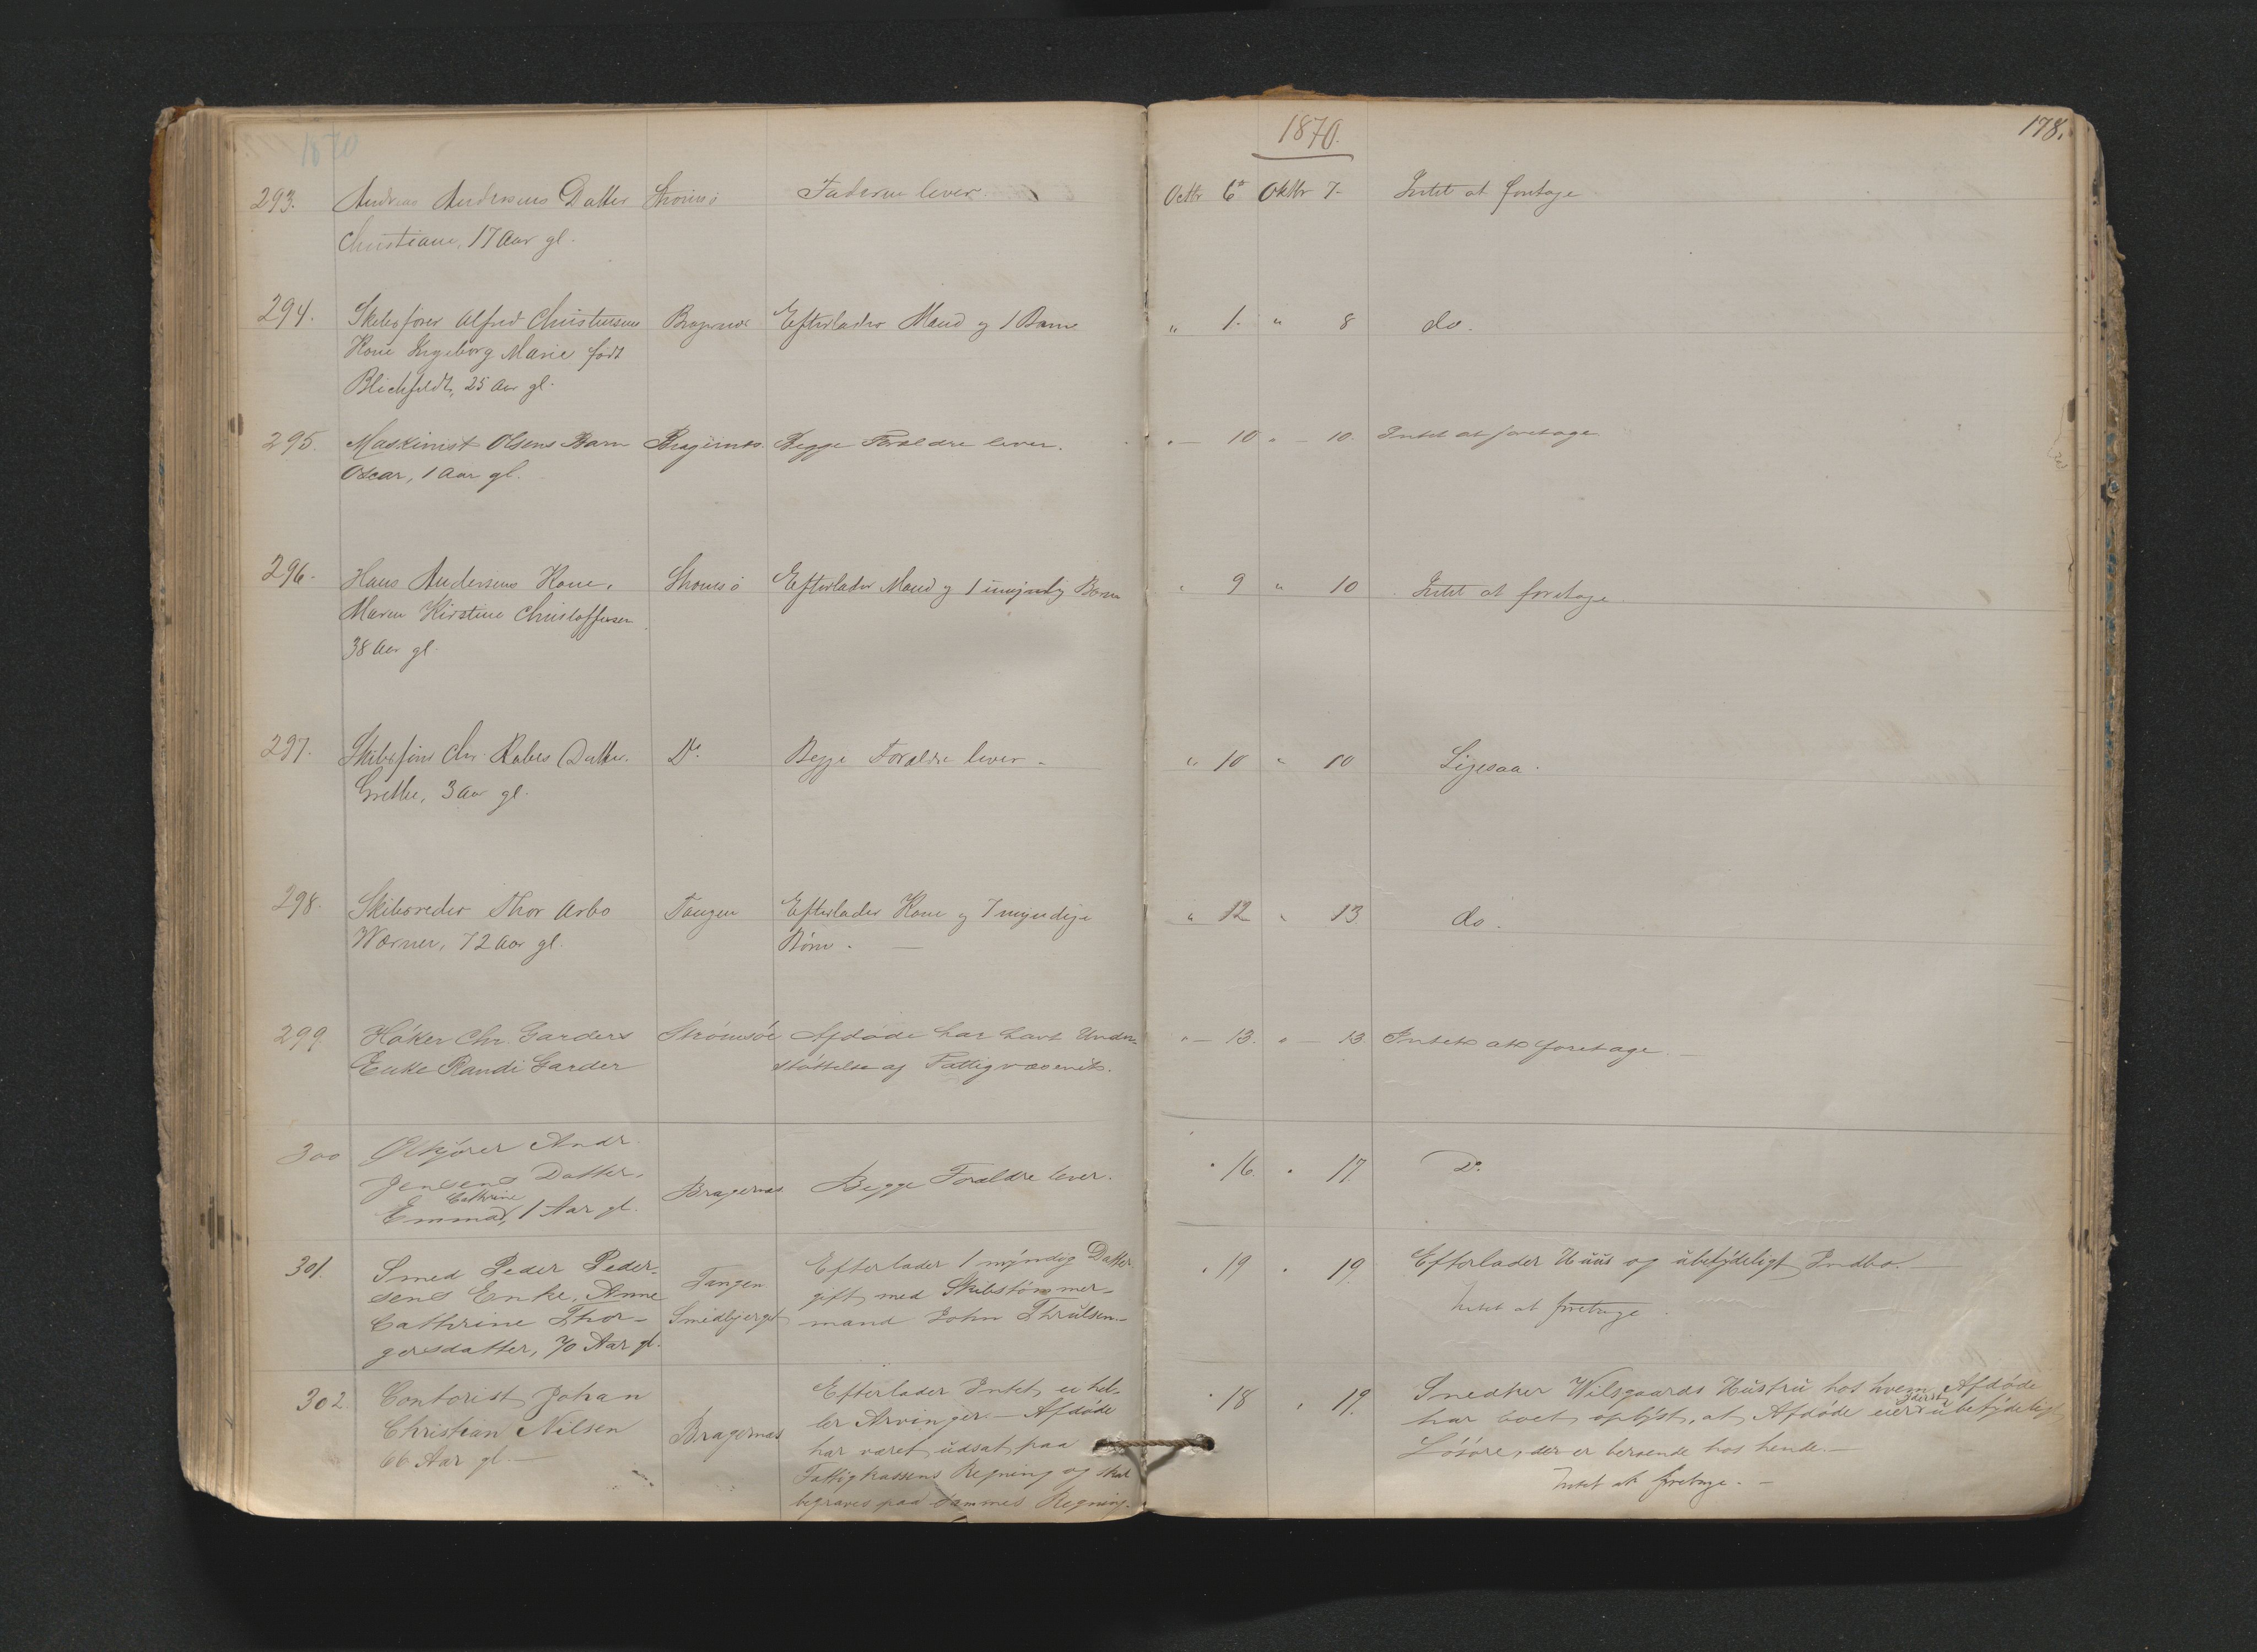 1870.
178.
293. Andreas Andersens Datter Strømsø Faderen lever. Octbr 6te Oktbr 7- Intet at foretage
Christiane, 17 Aar gl.
294. Skibsfører Alfred Christensens Bragernæs Efterlader Mand og 1 Barn " 1. " 8 do.
Kone Ingeborg Marie født
Blichfeldt, 25 Aar gl.
295. Maskinist Olsens Barn Bragernæs. Begge Forældre lever. " — 10 " — 10. Intet at foretage
Oscar, 1 Aar gl.
296. Hans Andersens Kone, Strømsø Efterlader Mand og 1 umyndig Barn " 9 " 10 Intet at foretage.
Maren Kirstine Christoffersen
38 Aar gl.
297. Skibsfører Chr. Rabes Datter. Do Begge Forældre lever - " 10 " 10 Ligesaa.
Grethe, 3 Aar gl.
298. Skibsreder Thor Arbo Tangen Efterlader Kone og 7 myndige " 12 " 13 do.
Wærner, 72 Aar gl. Børn. —
299 Høker Chr. Garders Strømsøe Afdøde har havt Under- " — 13. " — 13. Intet at foretage. —
Enke Randi Garder støttelse af Fattigvæsenet.
300 Ølkjører Andr.
Jensens Datter, Bragernæs Begge Forældre lever. " 16. " 17. Do.
Cathrine
Emma, 1 Aar gl.
301. Smed Peder Peder- Tangen Efterlader 1 myndig Datter, " 19 " 19. Efterlader Huus og ubetydeligt Indbo. —
sens Enke, Anne Smedbjerget gift med Skibstømmer- Intet at foretage.
Cathrine Thor- mand John Thrulsen. —
gersdatter, 70 Aar gl.
302. Contorist Johan Bragernæs Efterlader Intet, ei hel- " 18 " 19. Snedker Wilsgaards Hustru hos hvem Afdøde
Christian Nilsen ler Arvinger. — Afdøde har boet oplyst, at Afdøde eier yderst ubetydeligt
66 Aar gl. — har været udsat paa Løsøre, der er beroende hos hende. —
Fattigkassens Regning og skal Intet at foretage. —
begraves paa sammes Regning.